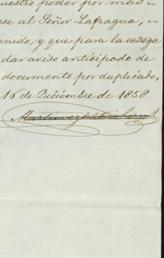 uestro poder por med=
rse al Señor Lafragua, -
enido, y que para la entrega
dar aviso anticipado de
documento por duplicado,
16 de Diciembre de 1858